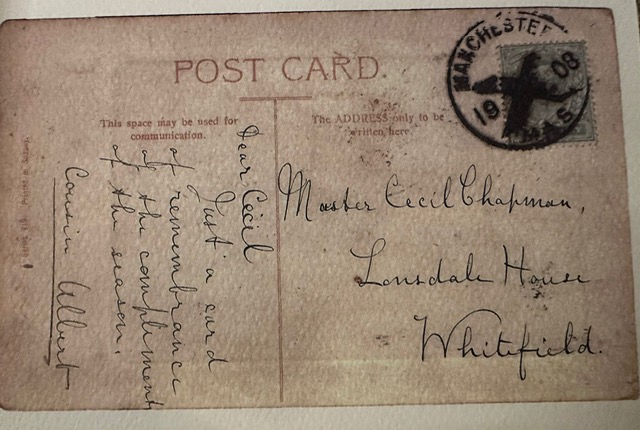 POST CARD.
This space may be used for
communication.
The ADDRESS only to be
written here.
MANCHESTER
1908
XMAS
Dear Cecil
Just a card
of remembrance
of the compliments
of the season.
Cousin Albert
Master Cecil Chapman,
Lonsdale House
Whitefield.